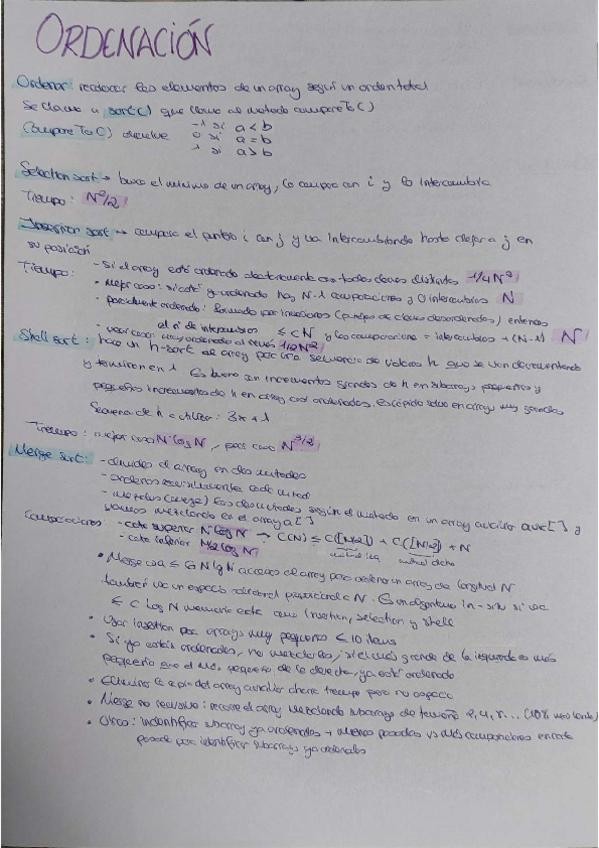 ORDENACIÓN
Ordenar: recolocar los elementos de un array según un orden total
Se llama a sort() que llama al metodo compareTo()
CompareTo() devuelve -1 si a < b
0 si a = b
1 si a > b
Selection sort → busca el minimo de un array, lo compara con i y lo intercambia
Tiempo: N²/2
Insertion sort → compara el puntero i con j y va intercambiando hasta colocar a j en
su posición
Tiempo: - Si el array está ordenado aleatoriamente con todas claves distintas 1/4 N²
- Mejor caso: si está ya ordenado hay N-1 comparaciones y 0 intercambios N
- parcialmente ordenado: formado por inversiones (parejas de claves desordenadas) entonces
el nº de intercambios ≤ cN y las comparaciones = intercambios + (N-1) N
- peor caso: array ordenado al revés 1/2 N²
Shell sort: hace un h-sort al array por una secuencia de valores h que se van decrementando
y terminan en 1. Es bueno con incrementos grandes de h en subarrays pequeños y
pequeños incrementos de h en array casi ordenados. Es rápido salvo en arrays muy grandes
Secuencia de h a utilizar: 3x+1
Tiempo: mejor caso N log N, peor caso N^3/2
Merge sort: - divides el array en dos mitades
- ordenas recursivamente cada mitad
- mezclas (merge) las dos mitades según el metodo en un array auxiliar aux[] y
vamos mezclando en el array a[]
Comparaciones: - cota superior N log N → C(N) ≤ C([N/2]) + C([N/2]) + N
- cota inferior N/2 log N mitad izq mitad dcha
• Merge usa ≤ 6 N lg N accesos al array para ordenar un array de longitud N
también usa un espacio adicional proporcional a N. Es un algoritmo in-situ si usa
≤ c log N memoria extra como insertion, selection y shell
• Usar insertion para arrays muy pequeños ≤ 10 items
• Si ya están ordenados, no mezclarlos, si el más grande de la izquierda es más
pequeño que el más pequeño de la derecha, ya está ordenado
• Eliminar la copia del array auxiliar ahorra tiempo pero no espacio
• Merge no recursivo: recorre el array mezclando subarrays de tamaño 2, 4, 8... (10% más lento)
• Otros: indentificar subarray ya ordenados → menos pasadas vs más comparaciones en cada
pasada para identificar subarrays ya ordenados